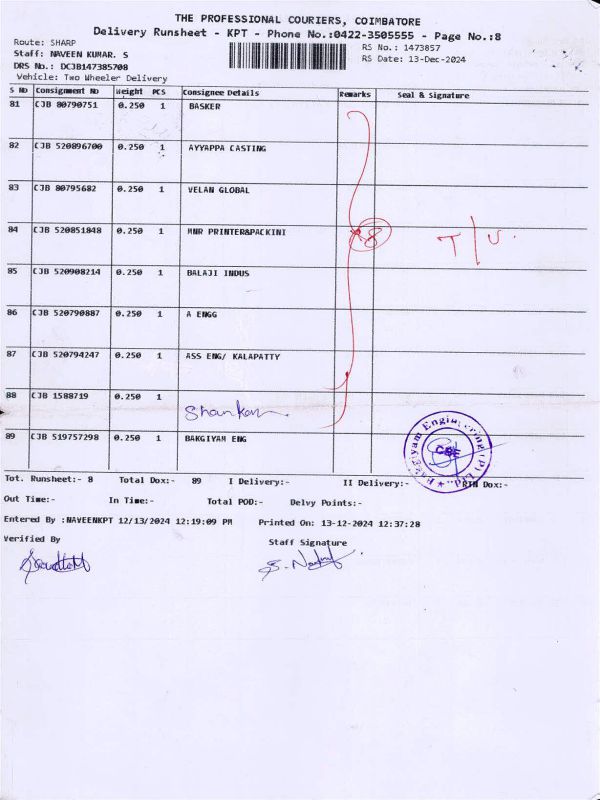 THE PROFESSIONAL COURIERS, COIMBATORE
Delivery Runsheet - KPT - Phone No.:0422-3505555 - Page No.:8
Route: SHARP
Staff: NAVEEN KUMAR. S
DRS No.: DCJB147385708
Vehicle: Two Wheeler Delivery
RS No.: 1473857
RS Date: 13-Dec-2024
S No Consignment No Weight PCS Consignee Details Remarks Seal & Signature
81 CJB 80790751 0.250 1 BASKER
82 CJB 520896700 0.250 1 AYYAPPA CASTING
83 CJB 80795682 0.250 1 VELAN GLOBAL
84 CJB 520851848 0.250 1 MNR PRINTER&PACKINI 8 T/U.
85 CJB 520908214 0.250 1 BALAJI INDUS
86 CJB 520790887 0.250 1 A ENGG
87 CJB 520794247 0.250 1 ASS ENG/ KALAPATTY
88 CJB 1588719 0.250 1 Shankar
89 CJB 519757298 0.250 1 BAKGIYAM ENG
Bakgiyam Engineering (P) Ltd., CBE
Tot. Runsheet:- 8 Total Dox:- 89 I Delivery:- II Delivery:- RTN Dox:-
Out Time:- In Time:- Total POD:- Delvy Points:-
Entered By :NAVEENKPT 12/13/2024 12:19:09 PM Printed On: 13-12-2024 12:37:28
Verified By Staff Signature